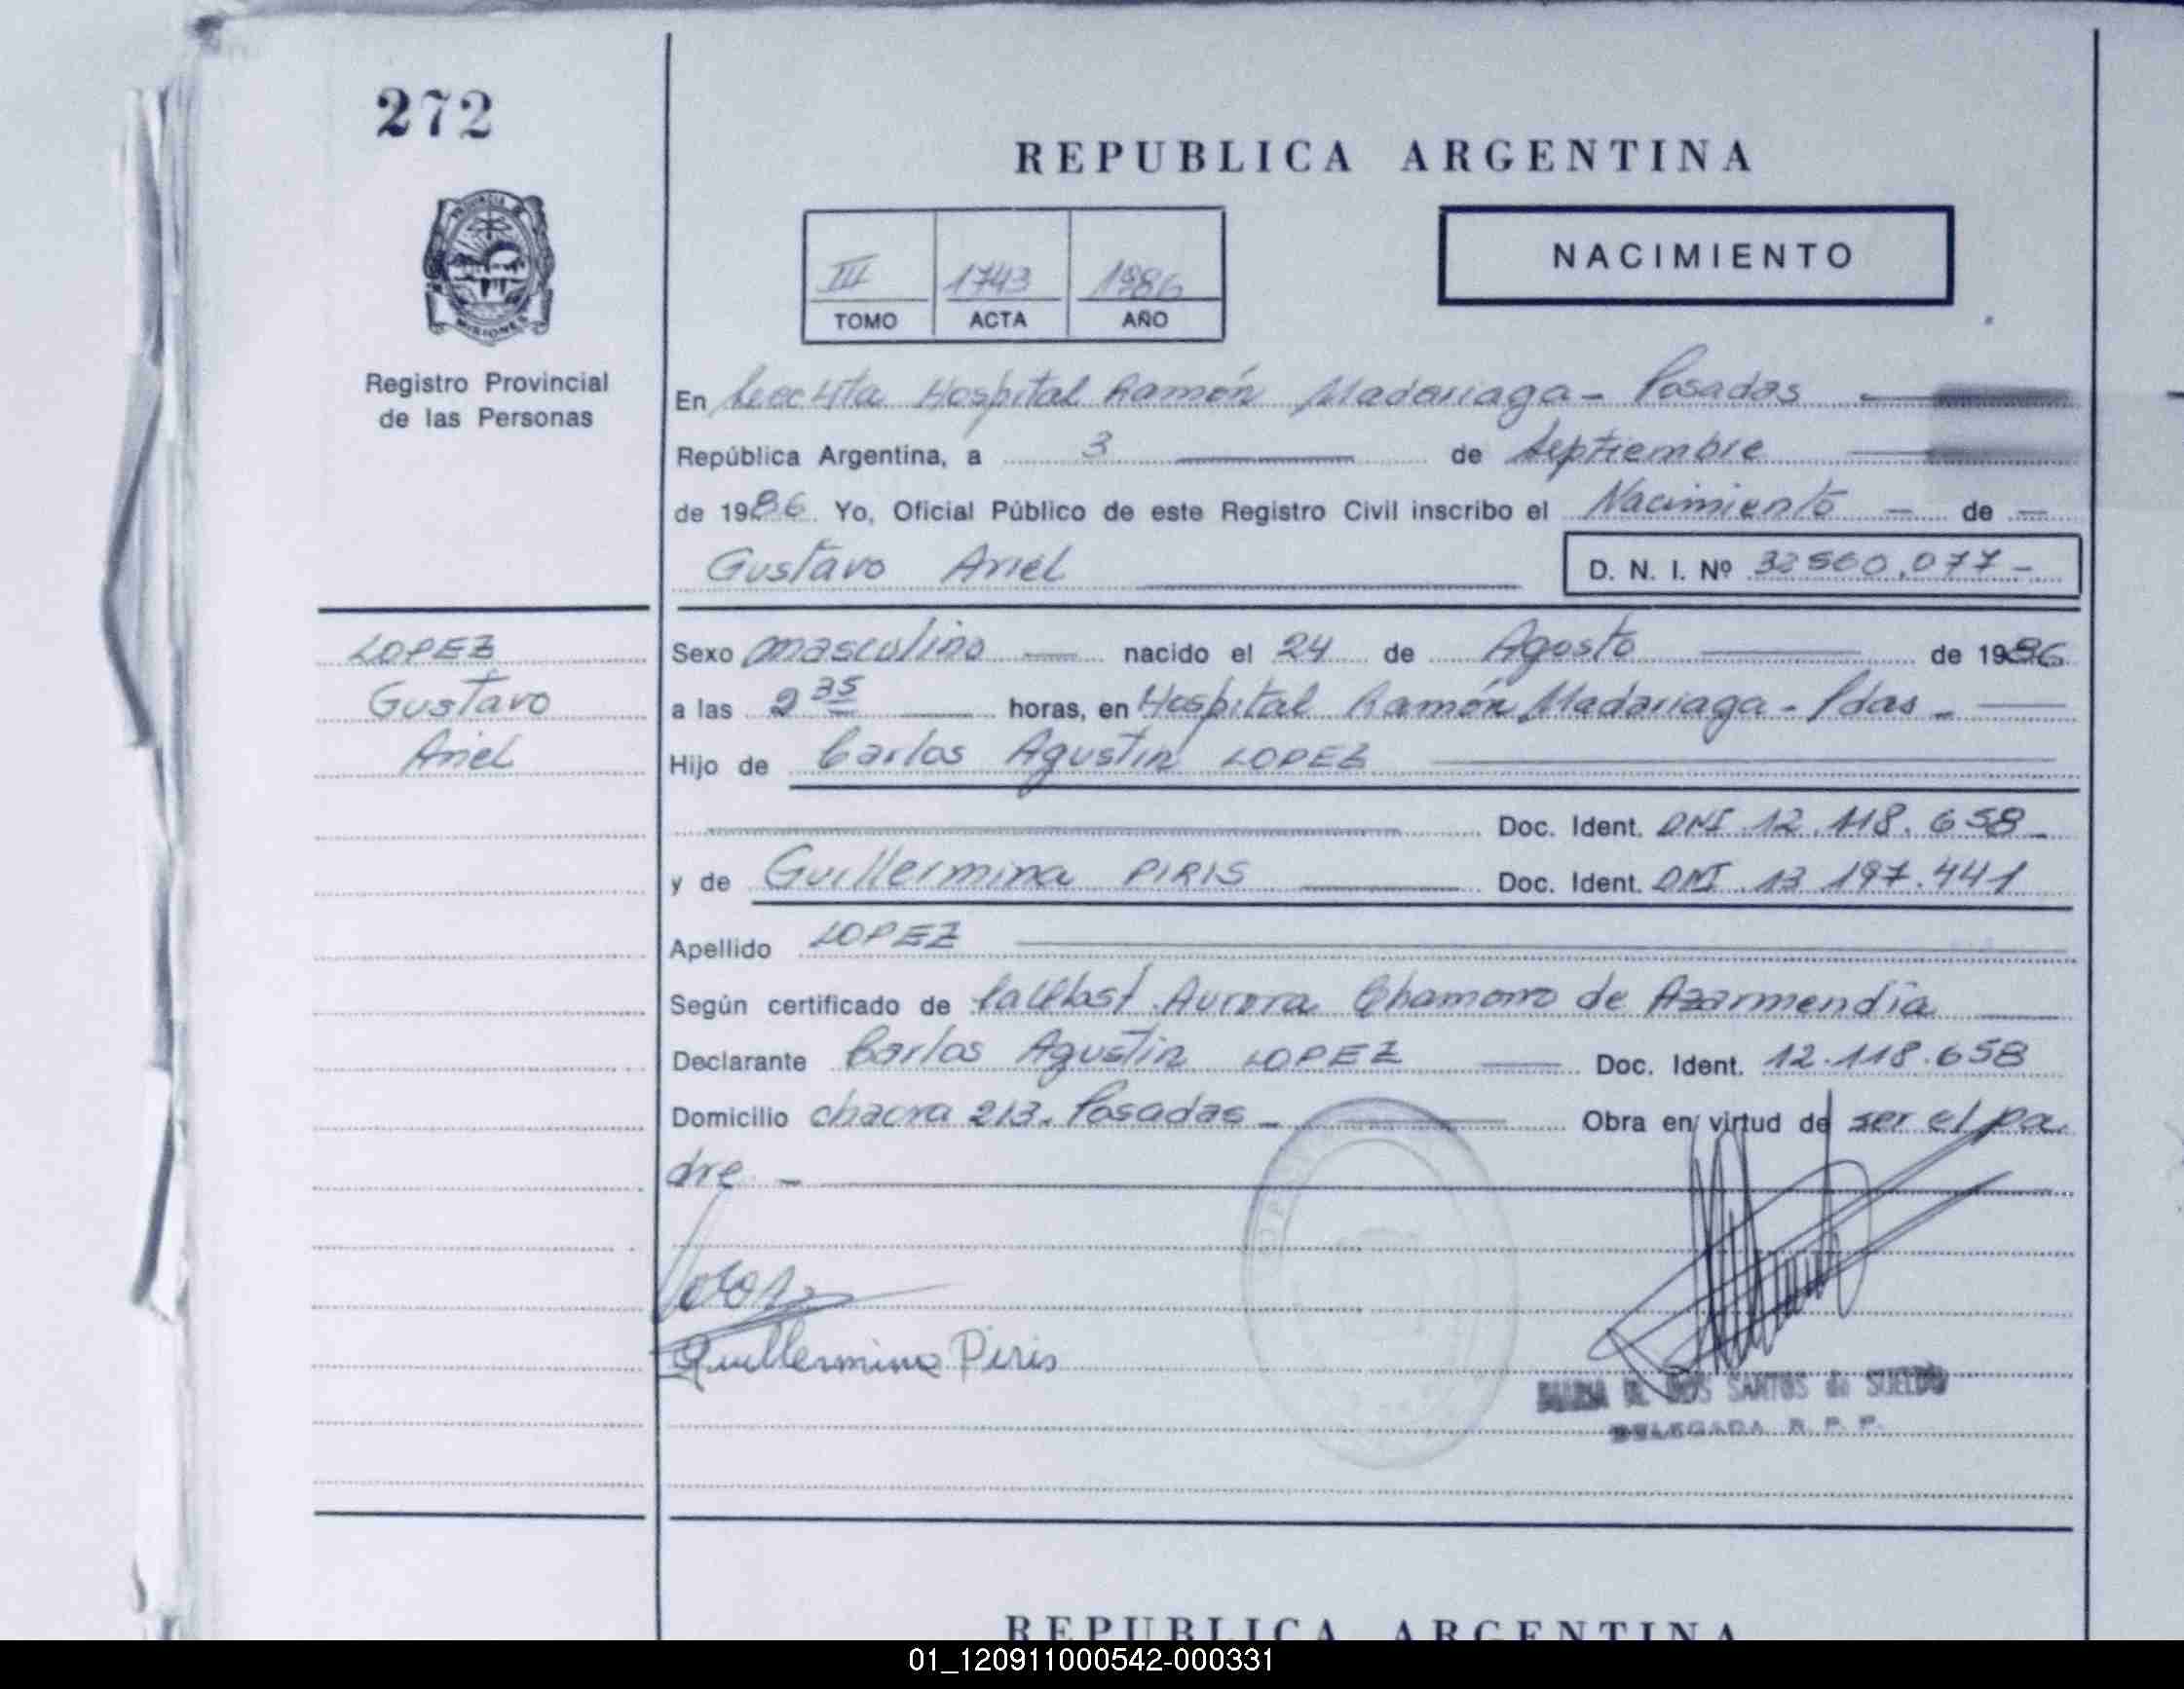 272
REPUBLICA ARGENTINA
NACIMIENTO
III 1743 1986
TOMO ACTA AÑO
PROVINCIA DE
MISIONES
Registro Provincial
de las Personas
En Hospital Ramón Madariaga - Posadas
República Argentina, a 3 de Septiembre
de 1986 Yo, Oficial Público de este Registro Civil inscribo el Nacimiento - de -
Gustavo Ariel D. N. I. Nº 32560.077-
LOPEZ
Gustavo
Ariel
Sexo masculino nacido el 24 de Agosto de 1986
a las 2 35 horas, en Hospital Ramón Madariaga - Pdas -
Hijo de Carlos Agustin LOPEZ
Doc. Ident. DNI 12.118.658-
y de Guillermina PIRIS Doc. Ident. DNI 13 197.441
Apellido LOPEZ
Según certificado de Aurora Chamorro de Azarmendia
Declarante Carlos Agustin LOPEZ Doc. Ident. 12.118.658
Domicilio chacra 213. Posadas - Obra en virtud de ser el pa
dre -
Guillermina Piris
DOS SANTOS de SUELDO
DELEGADA R. P. P.
REPUBLICA ARGENTINA
01_120911000542-000331